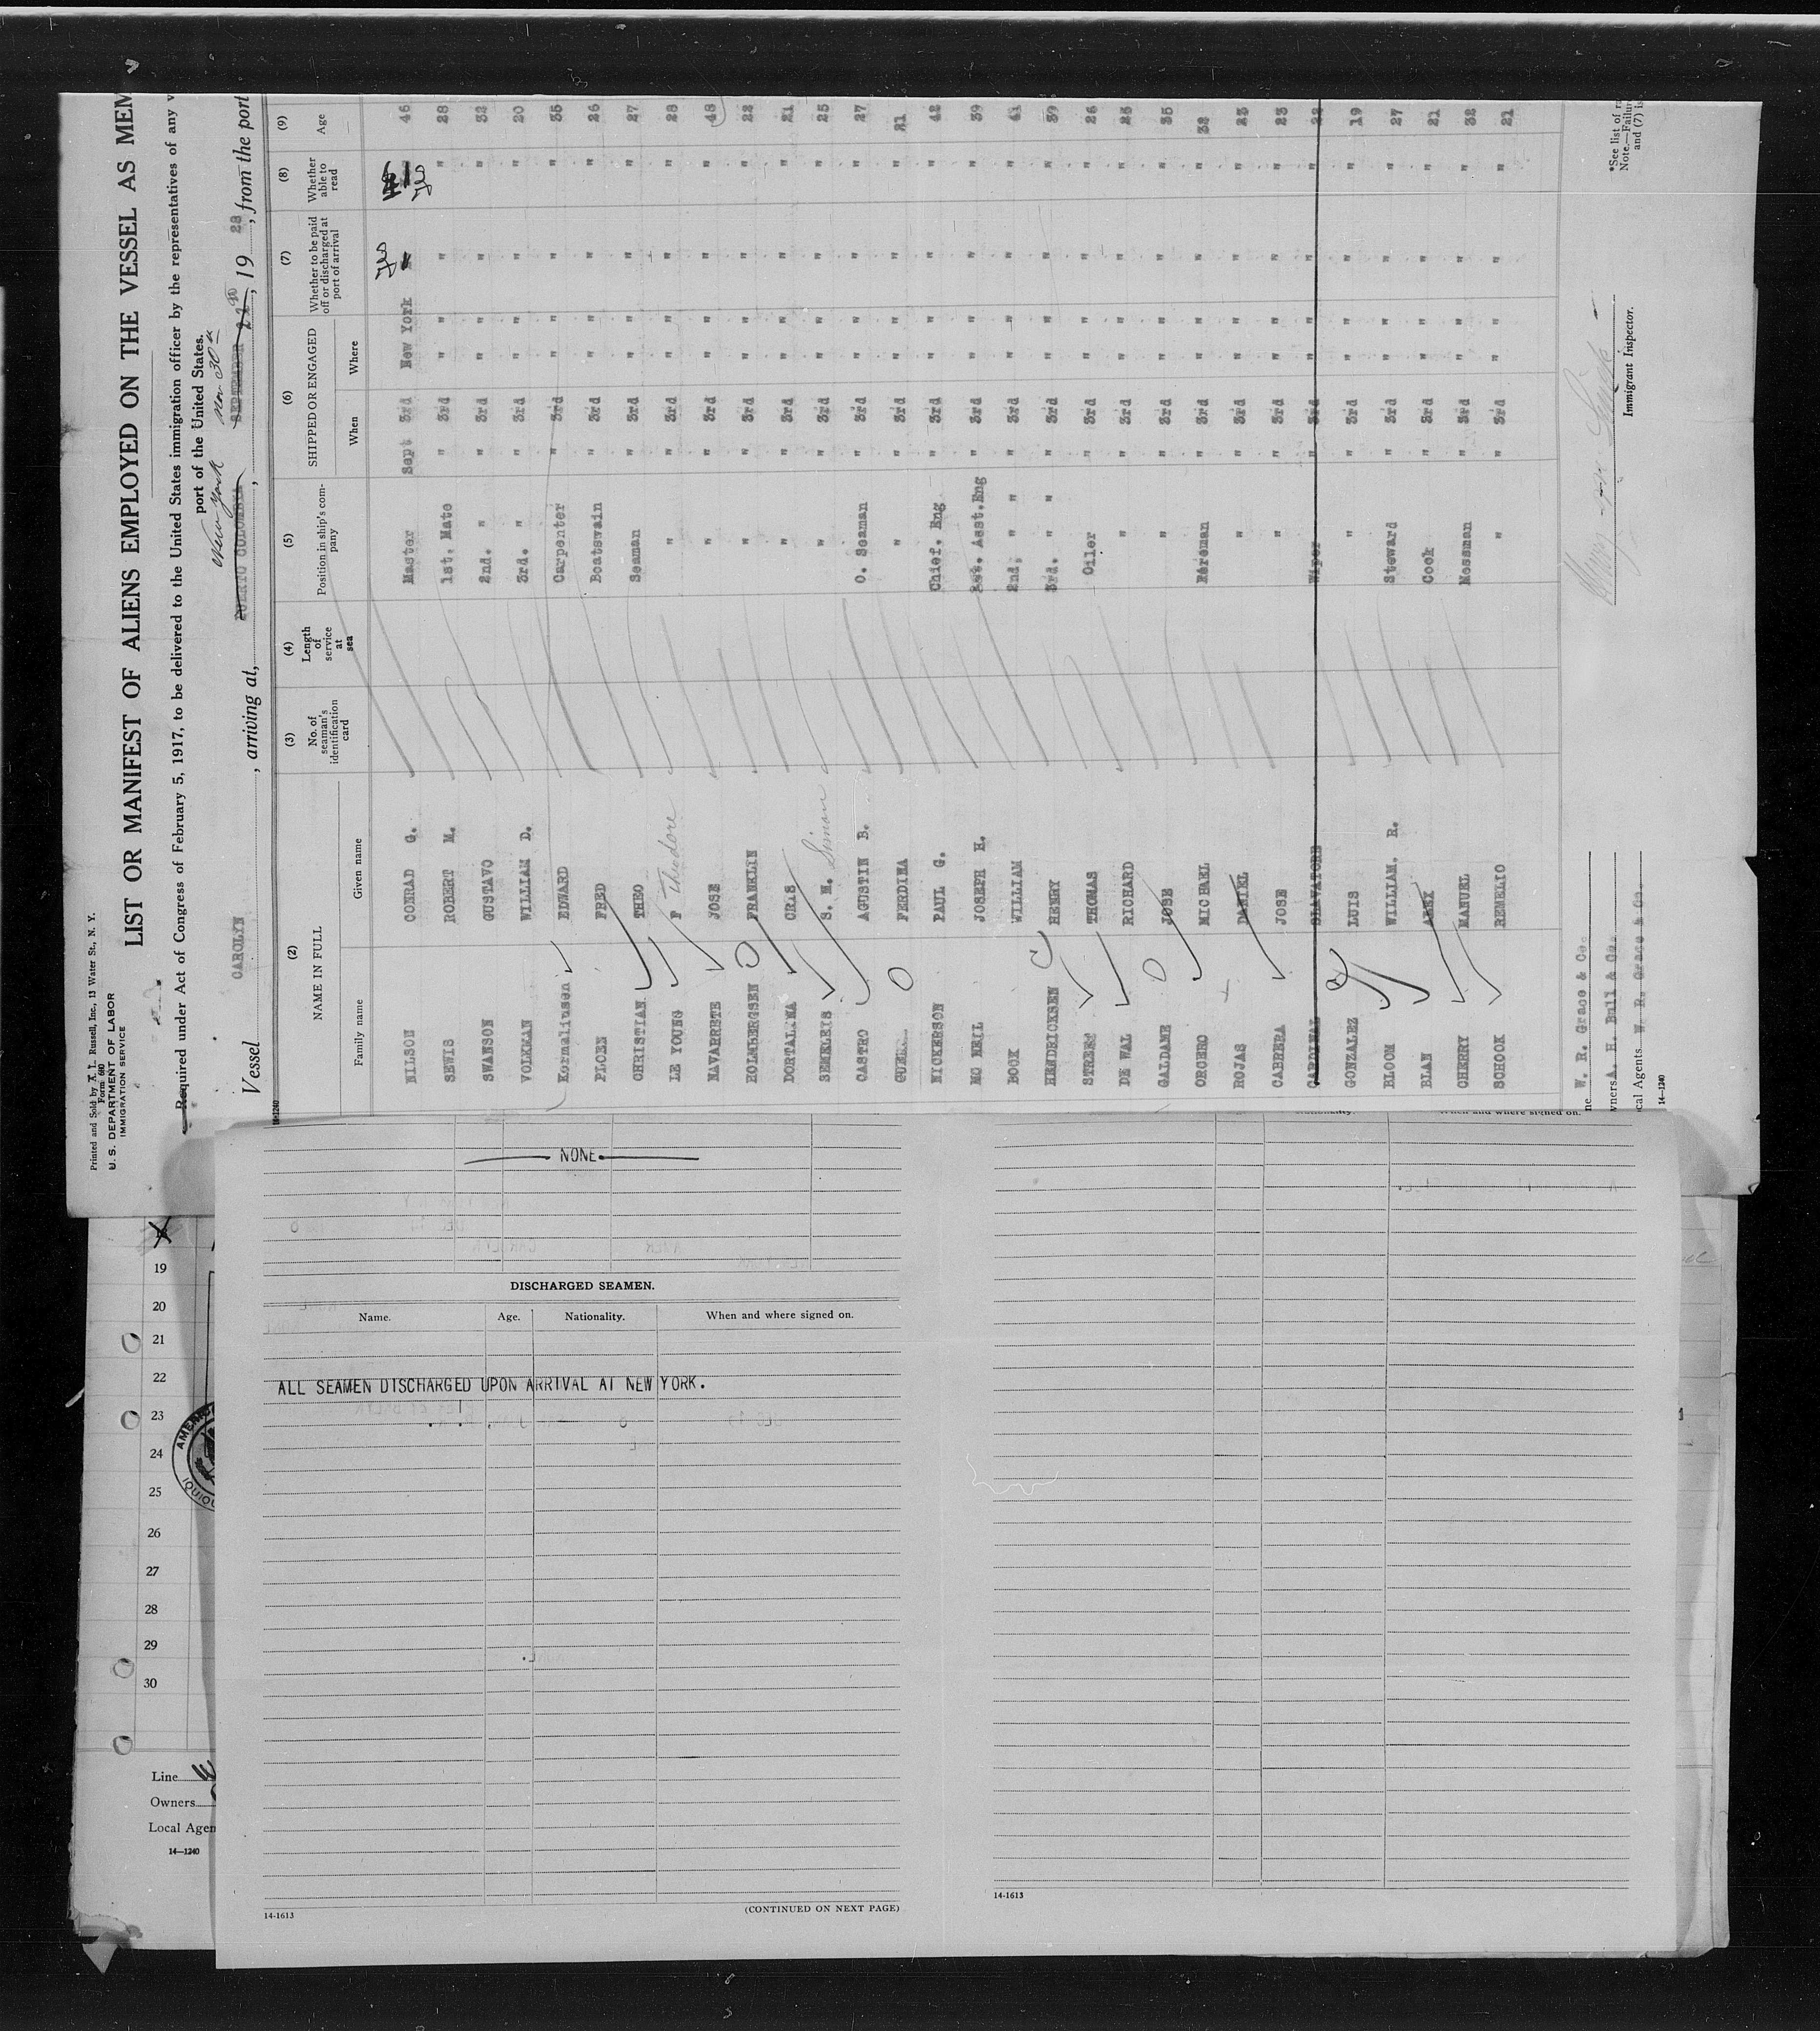 Printed and Sold by A. L. Russell, Inc., 13 Water St., N. Y.
Form 680
U. S. DEPARTMENT OF LABOR
IMMIGRATION SERVICE
LIST OR MANIFEST OF ALIENS EMPLOYED ON THE VESSEL AS MEM
Required under Act of Congress of February 5, 1917, to be delivered to the United States immigration officer by the representatives of any v
port of the United States.
New York Nov 30
Vessel CAROLYN , arriving at, PUERTO COLOMBIA , SEPTEMBER 22 , 19 28 , from the port
14-1240
(2) (3) (4) (5) (6) (7) (8) (9)
NAME IN FULL No. of seaman's identification card Length of service at sea Position in ship's company SHIPPED OR ENGAGED Whether to be paid off or discharged at port of arrival Whether able to read Age
Family name Given name When Where
NILSON CONRAD G. Master Sept 3rd New York Yes Yes 46
SEWIS ROBERT M. 1st. Mate " 3rd " " " " 28
SWANSON GUSTAVO 2nd. " " 3rd " " " " 32
VOLKMAN WILLIAM D. 3rd. " " 3rd " " " " 20
Kornaliusen EDWARD Carpenter " 3rd " " " " 35
PLOEN FRED Boatswain " 3rd " " " " 26
CHRISTIAN THEO Seaman " 3rd " " " " 27
LE YOUNG F Theodore " " 3rd " " " " 28
NAVARRETE JOSE " " 3rd " " " " 48
HOLMBERGSEN FRANKLIN " " 3rd " " " " 22
DORTALINA CRIS " " 3rd " " " " 21
SEMELEIS S. M. Simon " " 3rd " " " " 25
CASTRO AGUSTIN B. O. Seaman " 3rd " " " " 27
FERDINA " " 3rd " " " " 21
NICKERSON PAUL G. Chief. Eng " 3rd " " " " 42
MC NEIL JOSEPH H. 1st. Asst. Eng " 3rd " " " " 39
BOOK WILLIAM 2nd, " " " 3rd " " " " 41
HENDRICKSEN HENRY 3rd. " " " 3rd " " " " 39
STREET THOMAS Oiler " 3rd " " " " 26
DE WAL RICHARD " " 3rd " " " " 25
GALDAME JOSE " " 3rd " " " " 35
ORGERO MICHAEL Fireman " 3rd " " " " 32
ROJAS DANIEL " " 3rd " " " " 23
CABRERA JOSE " " 3rd " " " " 23
CARDINAL SLAVATORE Wiper " 3rd " " " " 22
GONZALEZ LUIS " " 3rd " " " " 19
BLOOM WILLIAM. R. Steward " 3rd " " " " 27
BLAN ALEX Cook " 3rd " " " " 21
CHERRY MANUEL Messman " 3rd " " " " 32
SCHOOK REMELIO " " 3rd " " " " 21
ne W. R. Grace & Co.
wners A. H. Bull & Co.
cal Agents W. R. Grace & Co.
14-1240
Immigrant Inspector.
*See list of ra
Note.—Failure
and (7) is
When and where signed on.
NONE
DISCHARGED SEAMEN.
Name. Age. Nationality. When and where signed on.
ALL SEAMEN DISCHARGED UPON ARRIVAL AT NEW YORK.
14-1613
(CONTINUED ON NEXT PAGE)
14-1613
19
20
21
22
23
24
25
26
27
28
29
30
AMER
IQUIQU
Line
Owners
Local Agen
14—1240